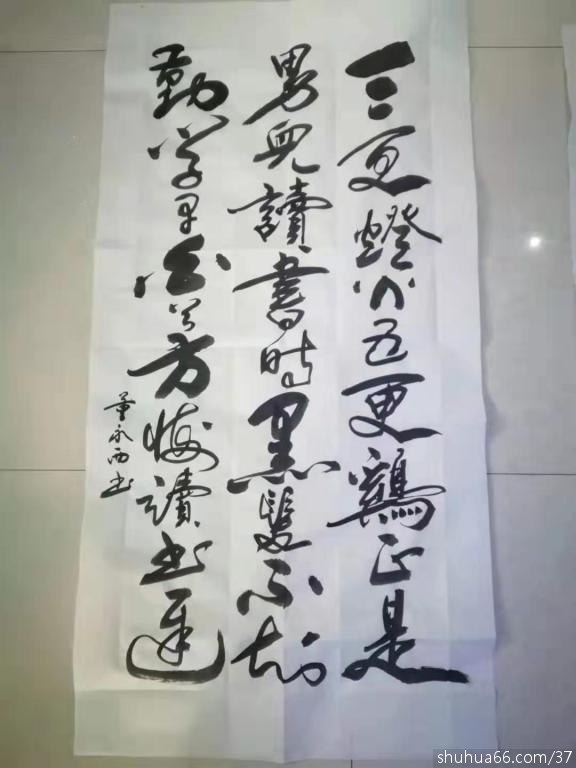 三更燈火五更鷄正是
男兒讀書時黑髮不知
勤学早白首方悔讀书遲
董永西书
shuhua66.com/37